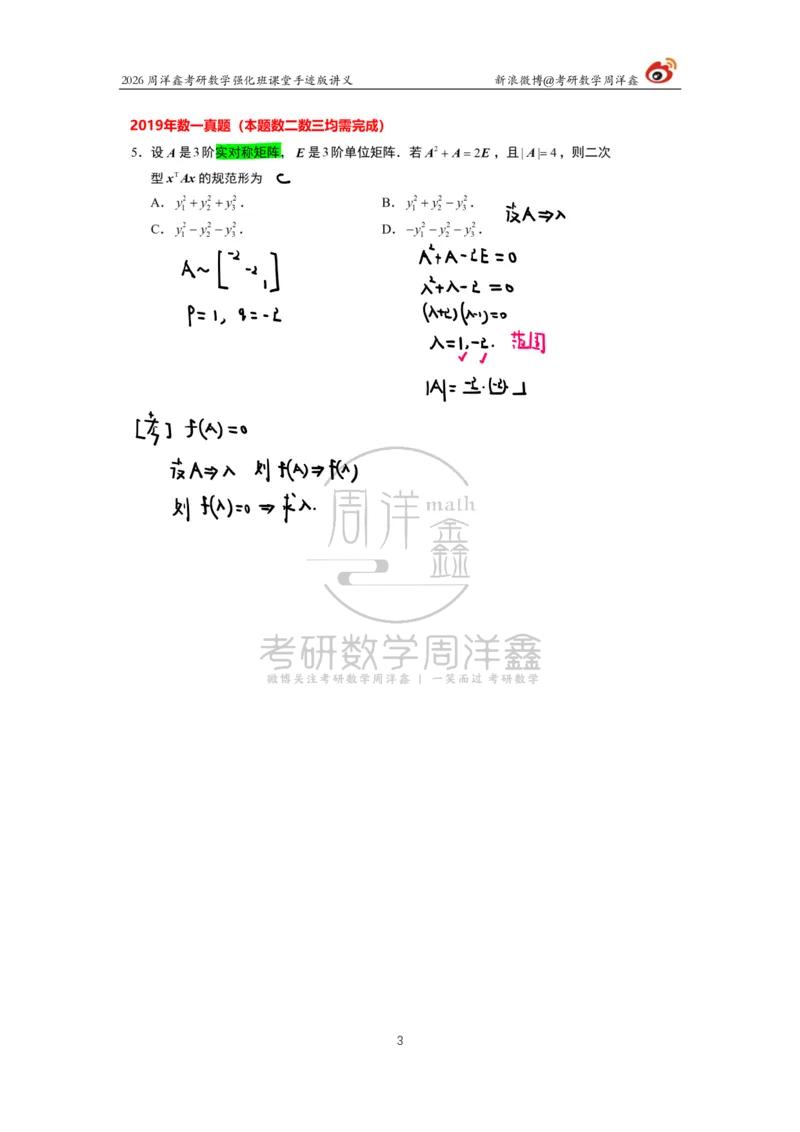 2026 周洋鑫考研数学强化班课堂手迹版讲义 新浪微博@考研数学周洋鑫
2019年数一真题（本题数二数三均需完成）
5．设 A 是3阶实对称矩阵，E 是3阶单位矩阵．若 A²+A=2E，且|A|=4，则二次
型 xᵀAx 的规范形为 C
A．y₁²+y₂²+y₃²． B．y₁²+y₂²−y₃²．
设A⇒λ
C．y₁²−y₂²−y₃²． D．−y₁²−y₂²−y₃²．
A~[-2 -2 1]
P=1, q=-2
A²+A-2E=0
λ²+λ-2=0
(λ+2)(λ-1)=0
λ=1,-2. 范围
✓ ✓
|A|=-2·(-2)·1
[考] f(A)=0
设A⇒λ 则 f(A)⇒f(λ)
则 f(λ)=0⇒求λ.
周洋鑫 math
考研数学周洋鑫
微博关注考研数学周洋鑫 | 一笑而过 考研数学
3